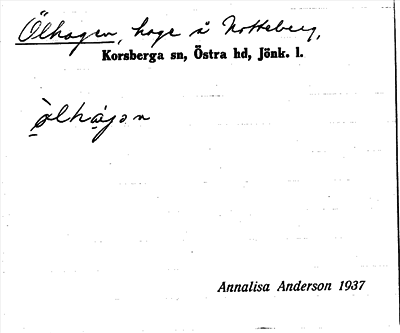 Ölhagen, hage å Notteberg,
Korsberga sn, Östra hd, Jönk. l.
ò̱lhа̱gən
Annalisa Anderson 1937